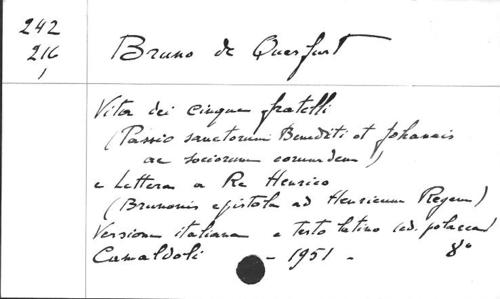 242
216
1
Bruno de Querfurt
Vita dei cinque fratelli
(Passio sanctorum Benediti et Johannis
ac sociorum eorumdem)
e Lettera a Re Henrico
(Brunonis epistola ad Henricum Regem)
Versione italiana e testo latino (ed. polacca)
Camaldoli - 1951 - 8°